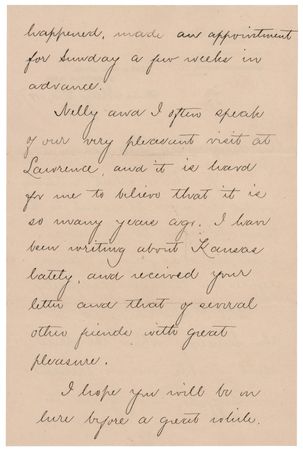 happened, made an appointment
for Sunday a few weeks in
advance.
Nelly and I often speak
of our very pleasant visit at
Lawrence, and it is hard
for me to believe that it is
so many years ago. I have
been writing about Kansas
lately, and received your
letter and that of several
other friends with great
pleasure.
I hope you will be on
here before a great while.